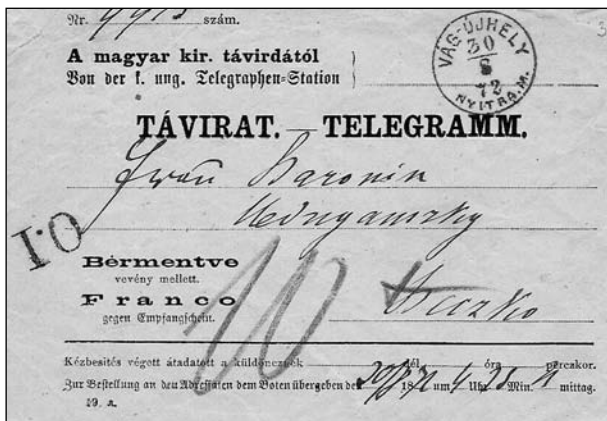 Nr. 9913 szám.
A magyar kir. távirdától
Von der k. ung. Telegraphen=Station
VÁG-ÚJHELY
30
8
72
NYITRA.M.
TÁVIRAT. — TELEGRAMM.
Frau Baronin
Mednyanszky
I.O
Bérmentve
vevény mellett.
Franco
gegen Empfangschein.
10
Beczko
Kézbesités végett átadatott a küldöncznek dél óra perczkor.
Zur Bestellung an den Adressaten dem Boten übergeben den 30/8 1872 um 4 Uhr 25 Min. mittag.
49. a.